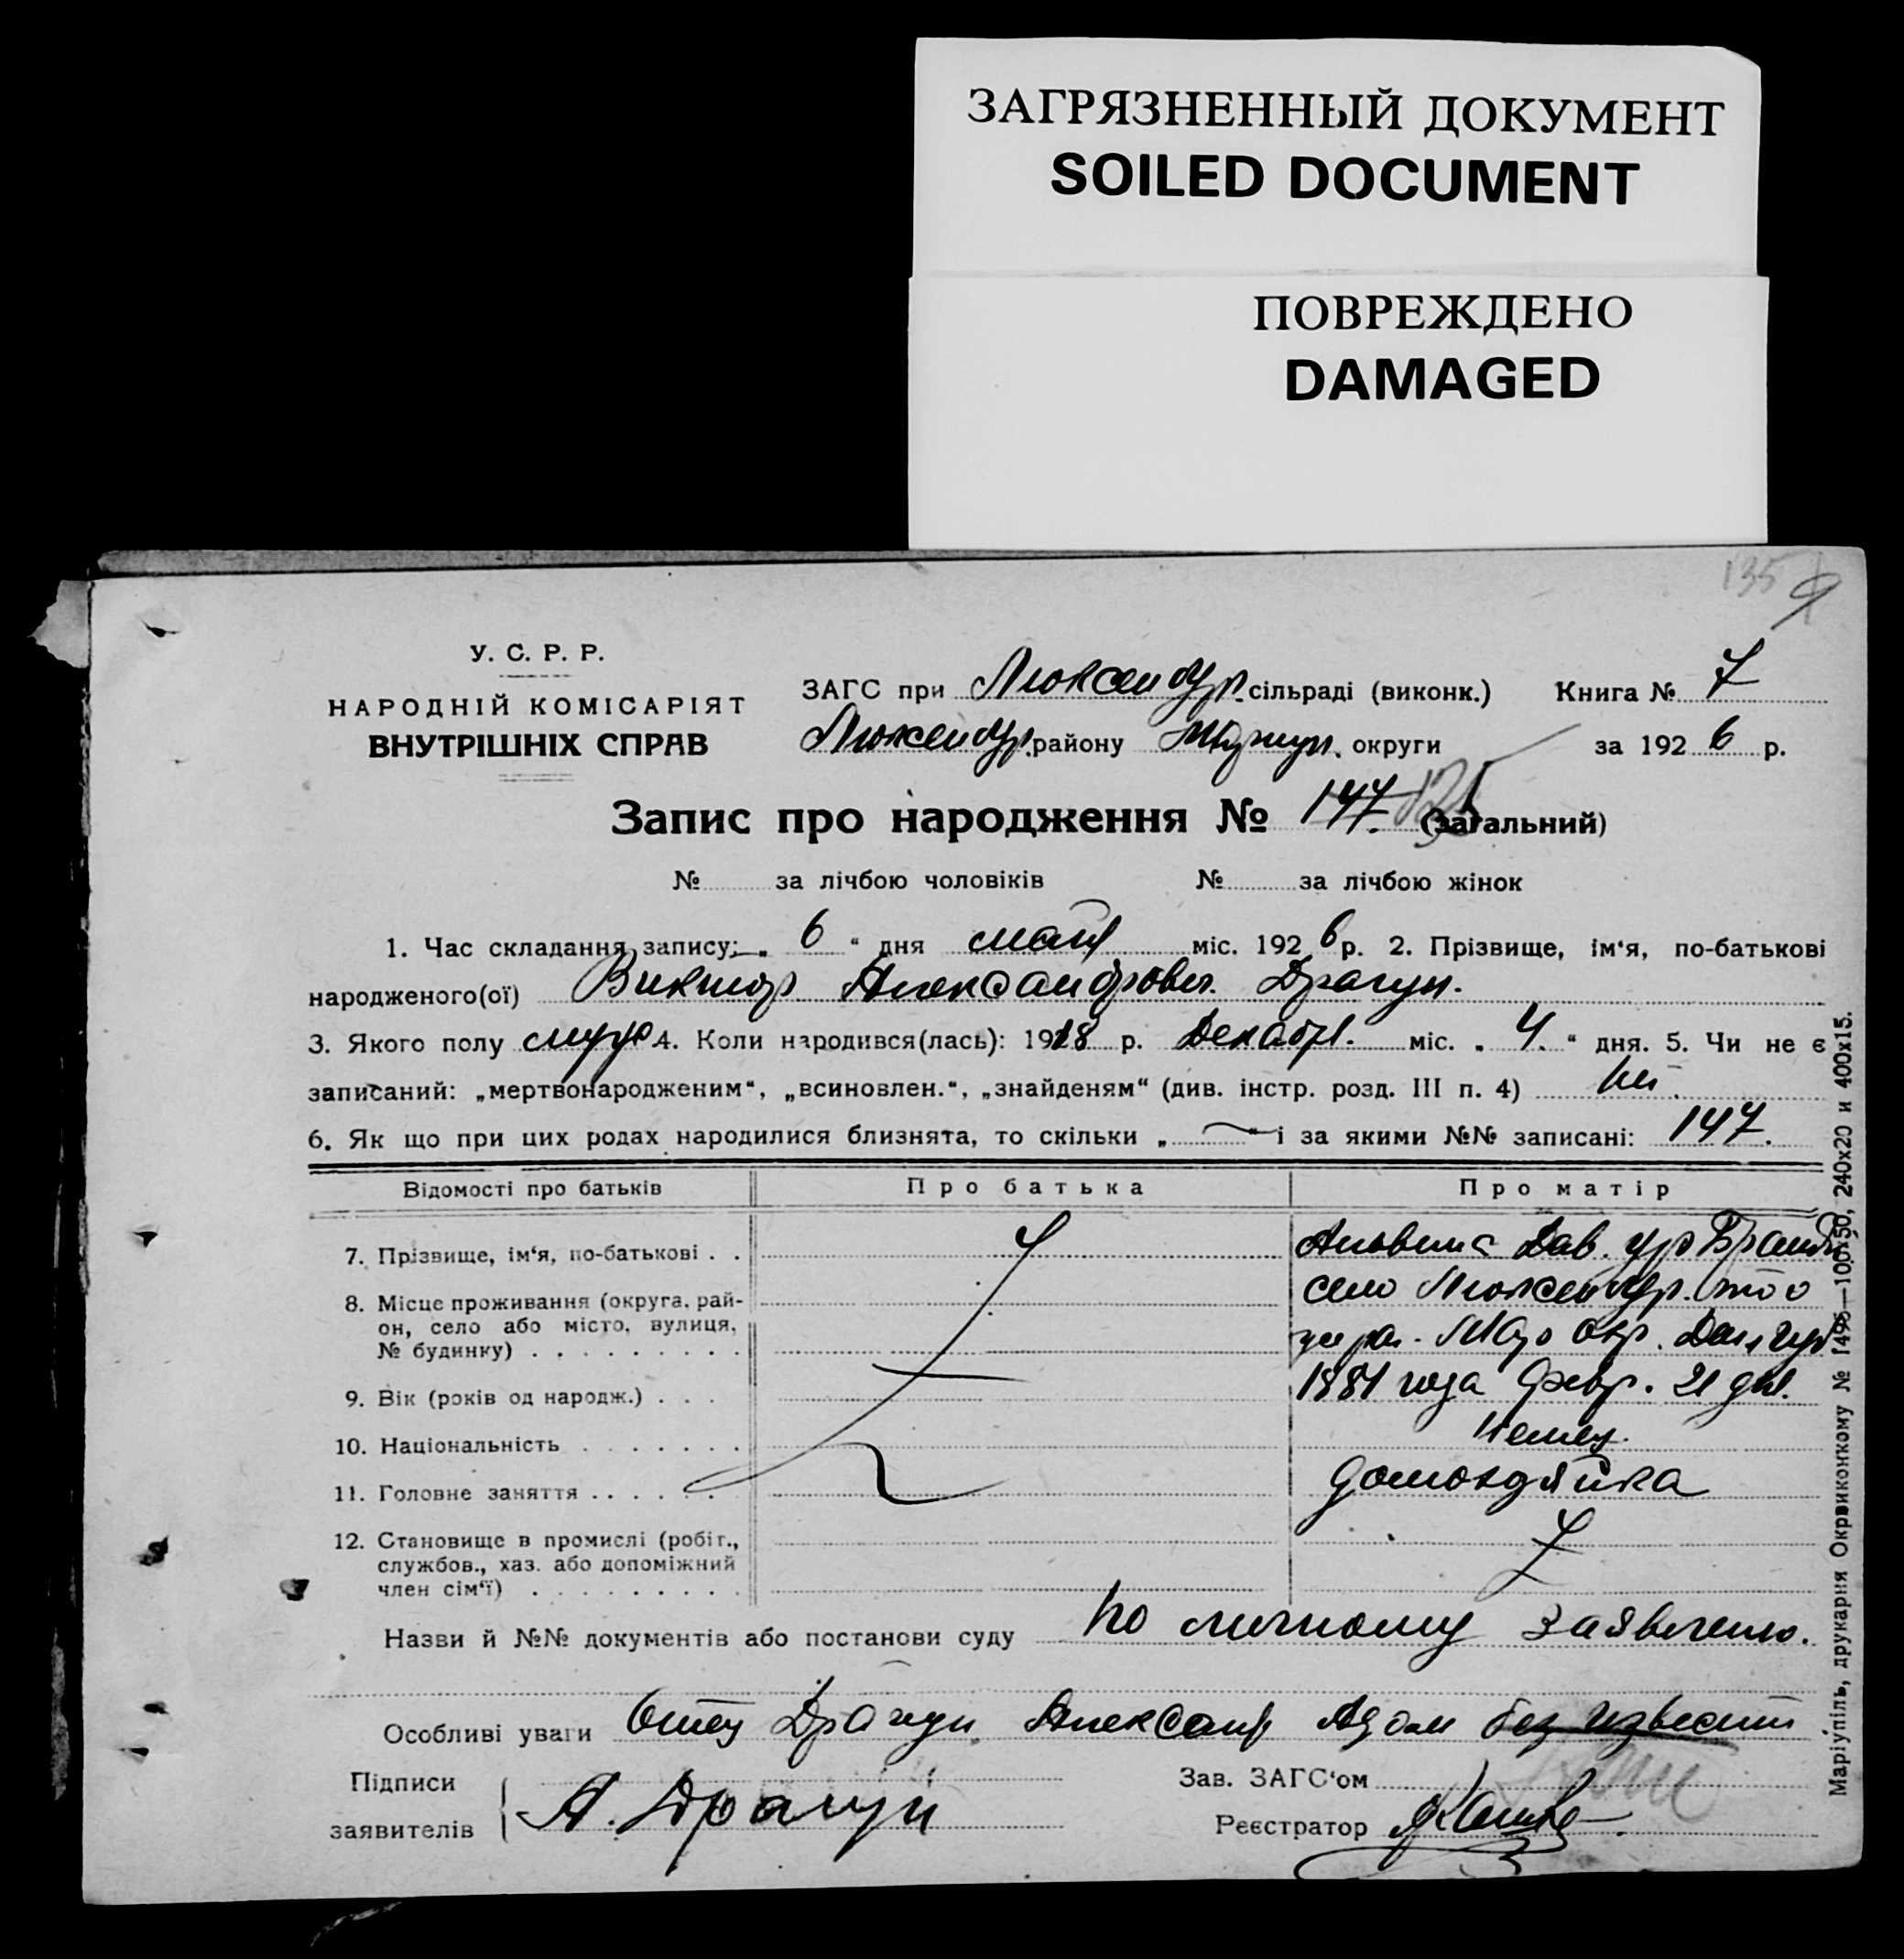 ЗАГРЯЗНЕННЫЙ ДОКУМЕНТ
SOILED DOCUMENT
ПОВРЕЖДЕНО
DAMAGED
135
У. С. Р. Р.
НАРОДНІЙ КОМІСАРІЯТ
ВНУТРІШНІХ СПРАВ
ЗАГС при Люксембур. сільраді (виконк.) Книга № 7
Люксембур. району Мариуп. округи за 192 6 р.
Запис про народження № 147. (загальний)
№ за лічбою чоловіків № за лічбою жінок
1. Час складання запису: „ 6 “ дня мая міс. 192 6 р. 2. Прізвище, ім‘я, по-батькові
народженого(ої) Виктор Александрович Драгун.
3. Якого полу муж 4. Коли народився(лась): 1918 р. Декабря. міс. „ 4. “ дня. 5. Чи не є
записаний: „мертвонародженим“, „всиновлен.“, „знайденям“ (див. інстр. розд. III п. 4)
6. Як що при цих родах народилися близнята, то скільки „ “ і за якими №№ записані: 147.
Відомості про батьків Про батька Про матір
7. Прізвище, ім‘я, по-батькові . . Дав. ур
8. Місце проживання (округа, рай- село Люксембур. того
он, село або місто, вулиця, окр.
№ будинку) . . . . . . . . .
9. Вік (років од народж.) . . . 1881 года Февр. 21 дня.
10. Національність . . . . . . . Немец.
11. Головне заняття . . . . . . домохозяйка
12. Становище в промислі (робіт.,
службов., хаз. або допоміжний
член сім‘ї) . . . . . . . . .
Назви й №№ документів або постанови суду по личному заявлению.
Особливі уваги Отец Драгун Александр Адам без извести
Підписи
заявителів А. Драгун
Зав. ЗАГС‘ом
Реєстратор
Маріупіль, друкарня Окрвиконкому № 1496—100х50, 240х20 и 400х15.